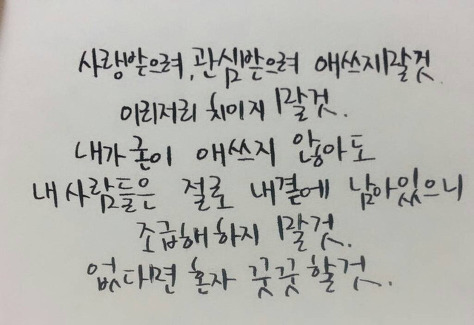 사랑받으려, 관심받으려 애쓰지말것
이리저리 치이지 말것.
내가 굳이 애쓰지 않아도
내 사람들은 절로 내곁에 남아있으니
조급해 하지 말것.
없다면 혼자 꿋꿋할것.